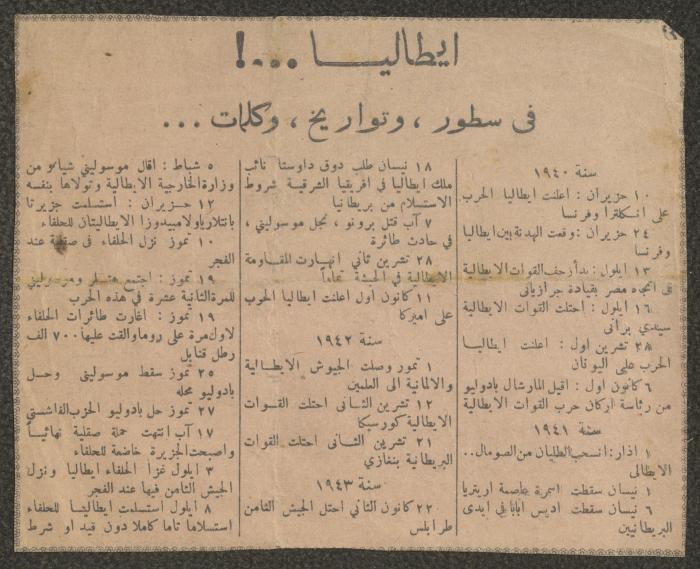 ايطاليـــا ...!
فى سطور ، وتواريخ ، وكلمات ...
سنة ١٩٤٠
١٠ حزيران : اعلنت ايطاليا الحرب
على انكلترا وفرنسا
٢٤ حزيران : وقعت الهدنة بين ايطاليا
وفرنسا
١٣ ايلول : بدأ زحف القوات الايطالية
فى اتجاه مصر بقيادة جرازيانى
١٦ ايلول : احتلت القوات الايطالية
سيدي برانى
٢٨ تشرين اول : اعلنت ايطاليـا
الحرب على اليونان
٦ كانون اول : اقيل المارشال بادوليو
من رئاسة اركان حرب القوات الايطالية
سنة ١٩٤١
١ اذار : انسحب الطليان من الصومال..
الايطالى
١ نيسان سقطت اسمرة عاصمة اريتريا
٦ نيسان سقطت اديس ابابا فى ايدى
البريطانيين
١٨ نيسان طلب دوق داوستا نائب
ملك ايطاليا فى افريقيا الشرقية شروط
الاستسلام من بريطانيا
٧ آب قتل برونو ، نجل موسوليني ،
في حادث طائرة
٢٨ تشرين ثاني انهارت المقاومة
الايطالية في الحبشة تماماً
١١ كانون اول اعلنت ايطاليا الحرب
على اميركا
سنة ١٩٤٢
١ تموز وصلت الجيوش الايطالية
والالمانية الى العلمين
١٢ تشرين الثانى احتلت القوات
الايطالية كورسيكا
٢١ تشرين الثانى احتلت القوات
البريطانية بنغازي
سنة ١٩٤٣
٢٢ كانون الثاني احتل الجيش الثامن
طرابلس
٥ شباط : اقال موسوليني شيانو من
وزارة الخارجية الايطالية وتولاها بنفسه
١٢ حزيران : أستسلمت جزيرتا
بانتلاريا ولامبيدوزا الايطاليتان للحلفاء
١٠ تموز نزل الحلفاء فى صقلية عند
الفجر
١٩ تموز : اجتمع هتلر وموسوليني
للمرة الثانية عشرة في هذه الحرب
١٩ تموز : اغارت طائرات الحلفاء
لاول مرة على روما والقت عليها ٧٠٠ الف
رطل قنابل
٢٥ تموز سقط موسولينى وحل
بادوليو محله
٢٧ تموز حل بادوليو الحزب الفاشستي
١٧ آب انتهت حملة صقلية نهائياً
واصبحت الجزيرة خاضعة للحلفاء
٣ ايلول غزا الحلفاء ايطاليا ونزل
الجيش الثامن فيها عند الفجر
٨ ايلول استسلمت ايطاليـا للحلفاء
استسلاما تاما كاملا دون قيد او شرط